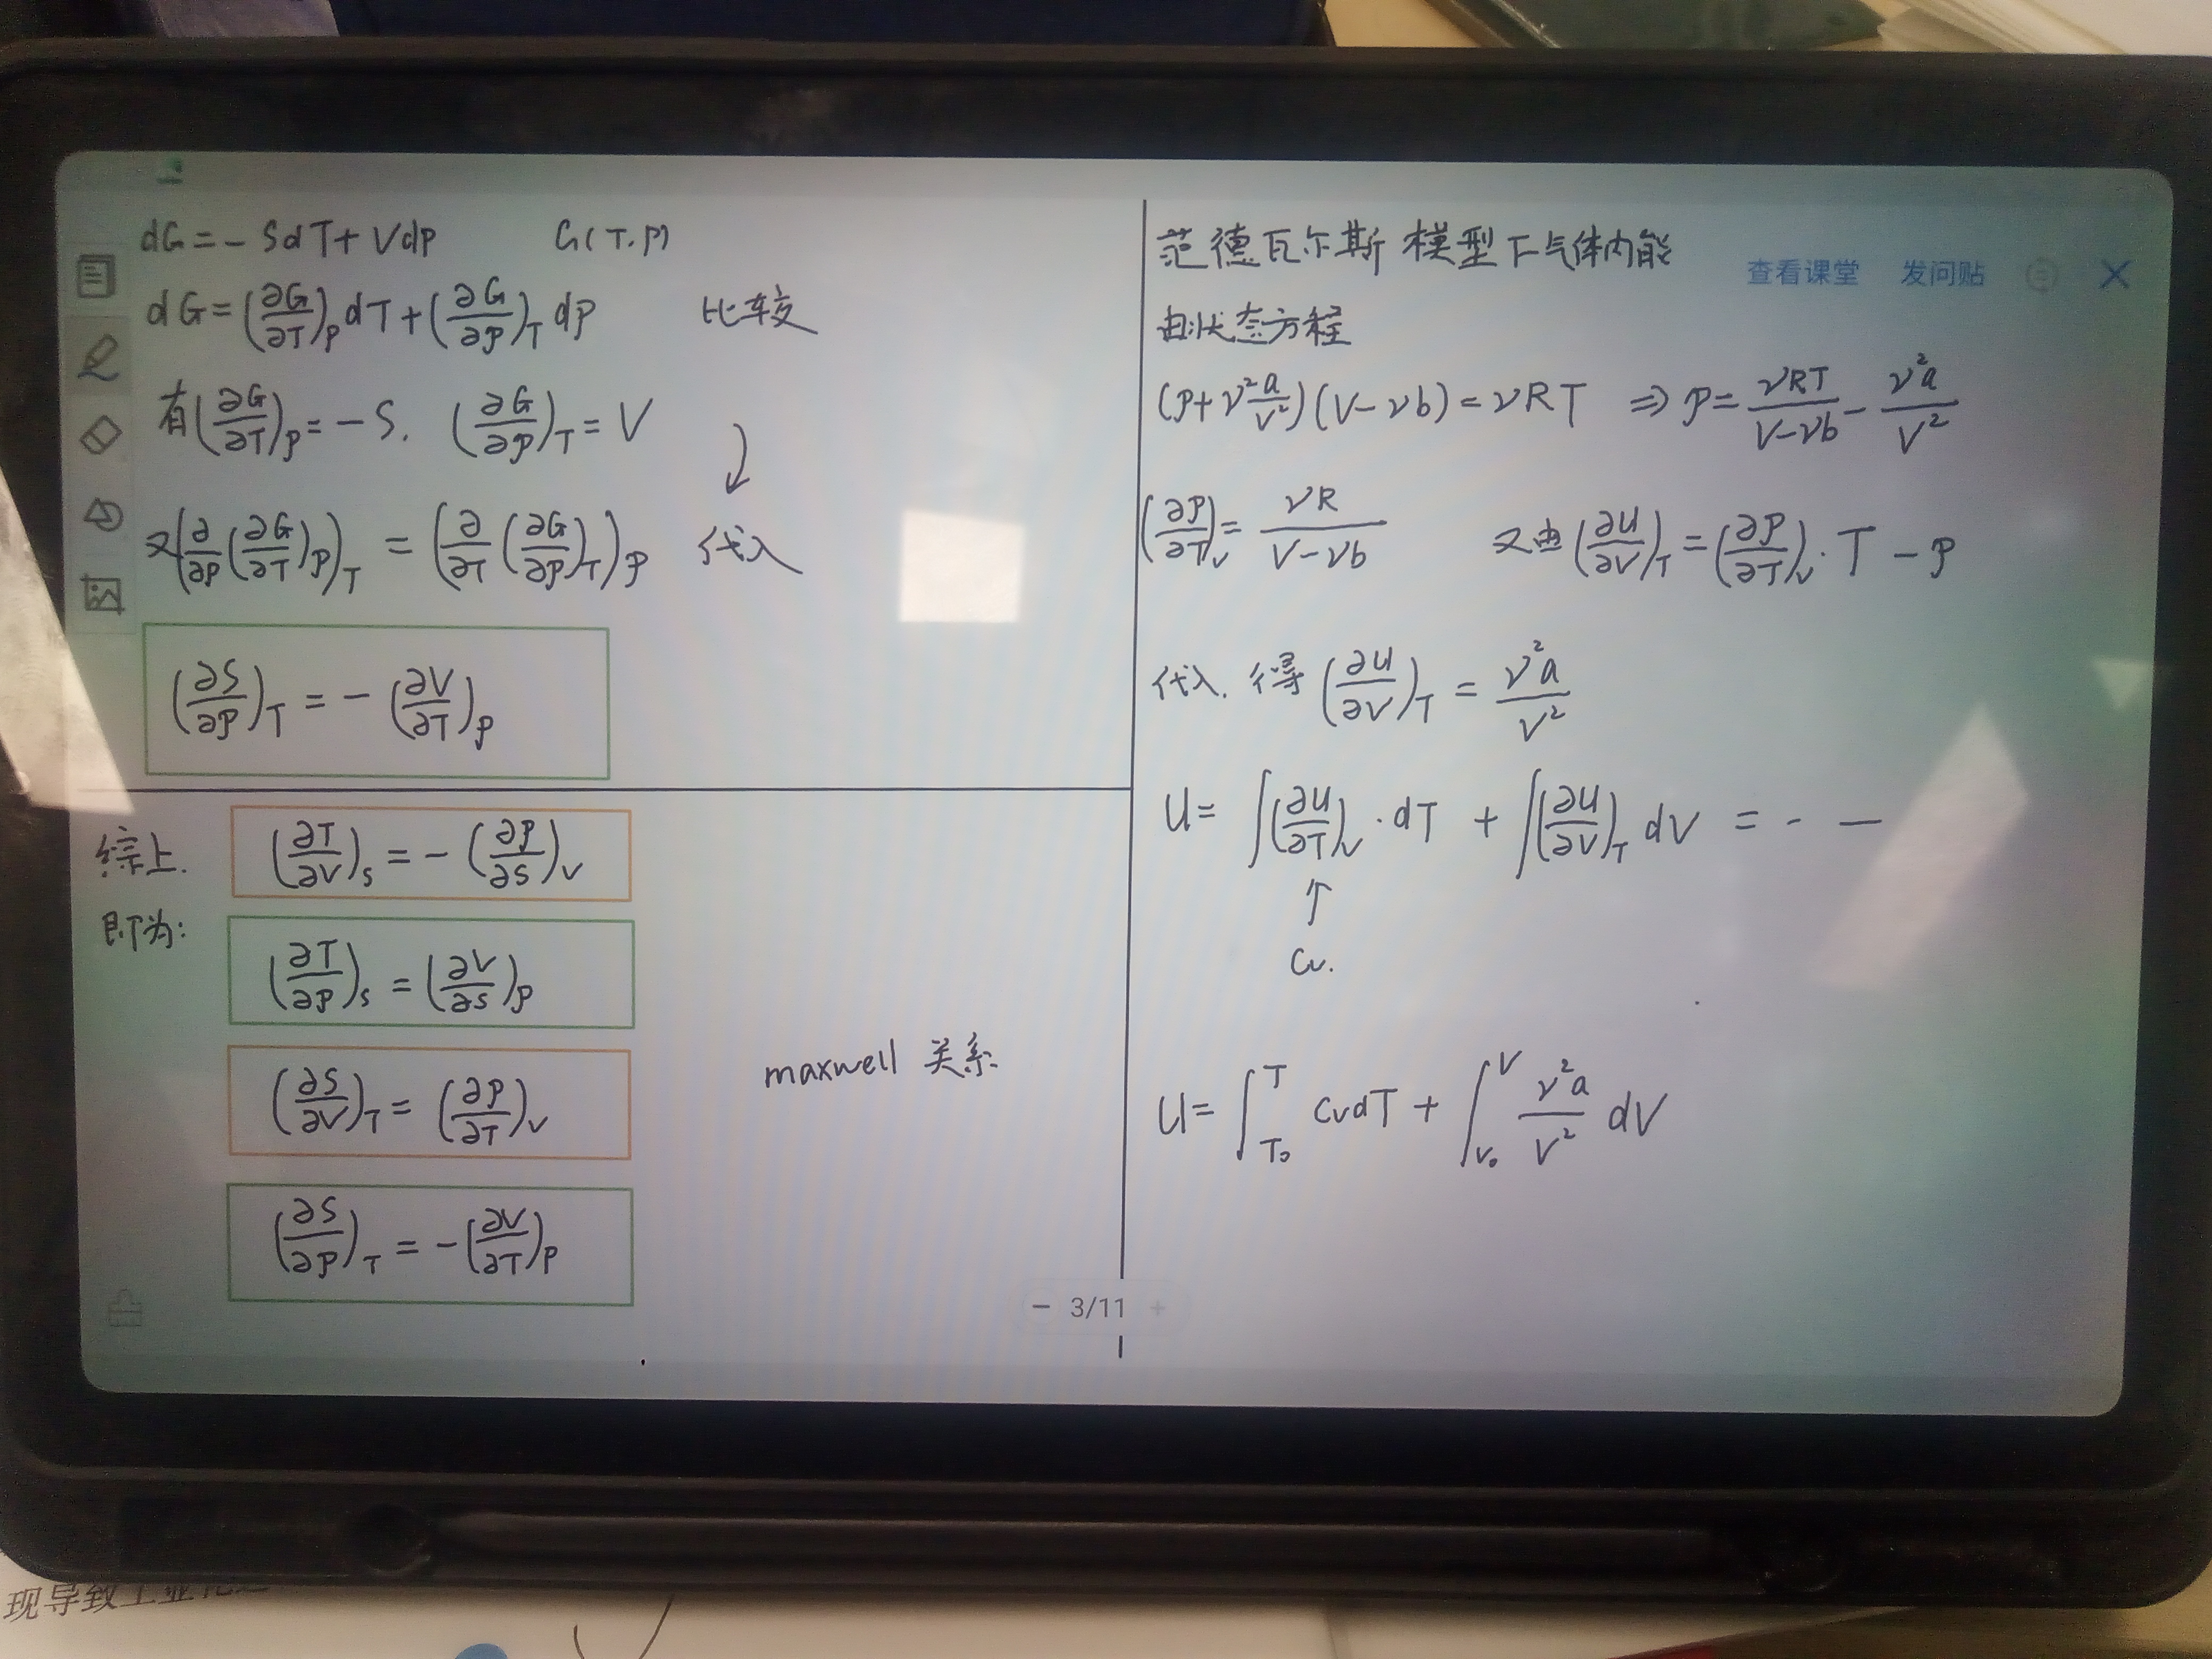 dG = - SdT + Vdp G(T.P)
dG = (∂G/∂T)_P dT + (∂G/∂P)_T dp 比较
有 (∂G/∂T)_P = - S. (∂G/∂P)_T = V
又 (∂/∂P (∂G/∂T)_P)_T = (∂/∂T (∂G/∂P)_T)_P 代入
(∂S/∂P)_T = - (∂V/∂T)_P
综上. (∂T/∂V)_S = - (∂P/∂S)_V
即为: (∂T/∂P)_S = (∂V/∂S)_P
(∂S/∂V)_T = (∂P/∂T)_V
maxwell 关系
(∂S/∂P)_T = - (∂V/∂T)_P
范德瓦尔斯 模型下气体内能
查看课堂 发问贴
由状态方程
(P + ν² a/V²)(V - νb) = νRT ⇒ P = νRT/(V-νb) - ν²a/V²
(∂P/∂T)_V = νR/(V-νb) 又由 (∂U/∂V)_T = (∂P/∂T)_V · T - P
代入. 得 (∂U/∂V)_T = ν²a/V²
U = ∫(∂U/∂T)_V · dT + ∫(∂U/∂V)_T dV = - —
↑
Cv.
U = ∫_{T₀}^{T} CvdT + ∫_{V₀}^{V} ν²a/V² dV
3/11
现导致工业化